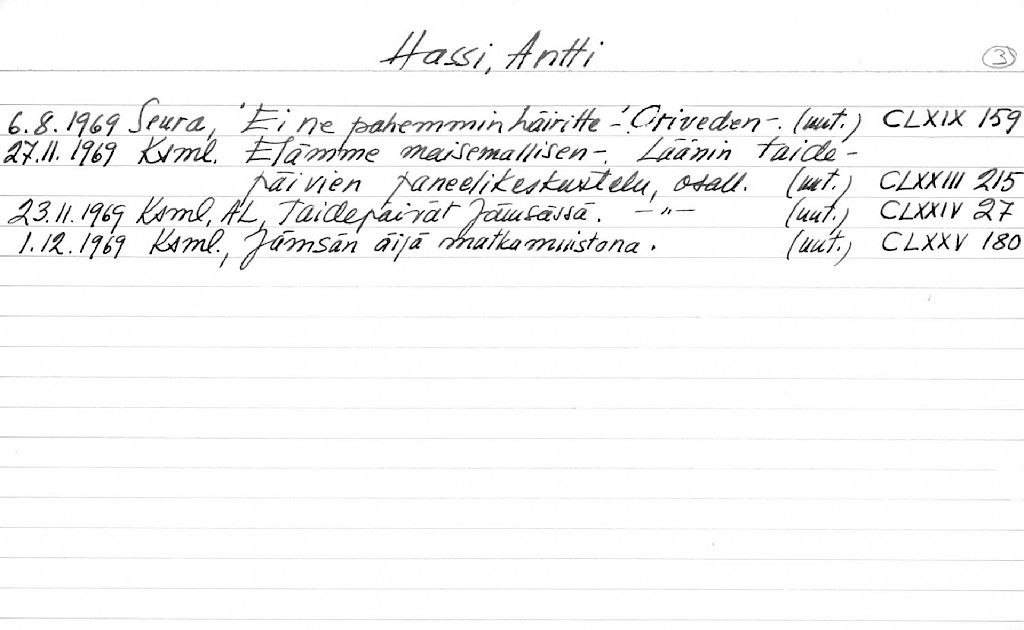 Hassi, Antti
3
6.8.1969 Seura, 'Ei ne pahemmin häiritte-'. Oriveden-. (uut.) CLXIX 159
27.11.1969 Ksml. Elämme maisemallisen-. Läänin taide-
päivien paneelikeskustelu, osall. (uut.) CLXXIII 215
23.11.1969 Ksml, AL, Taidepäivät Jämsässä. -"- (uut.) CLXXIV 27
1.12.1969 Ksml., Jämsän äijä matkamuistona. (uut.) CLXXV 180